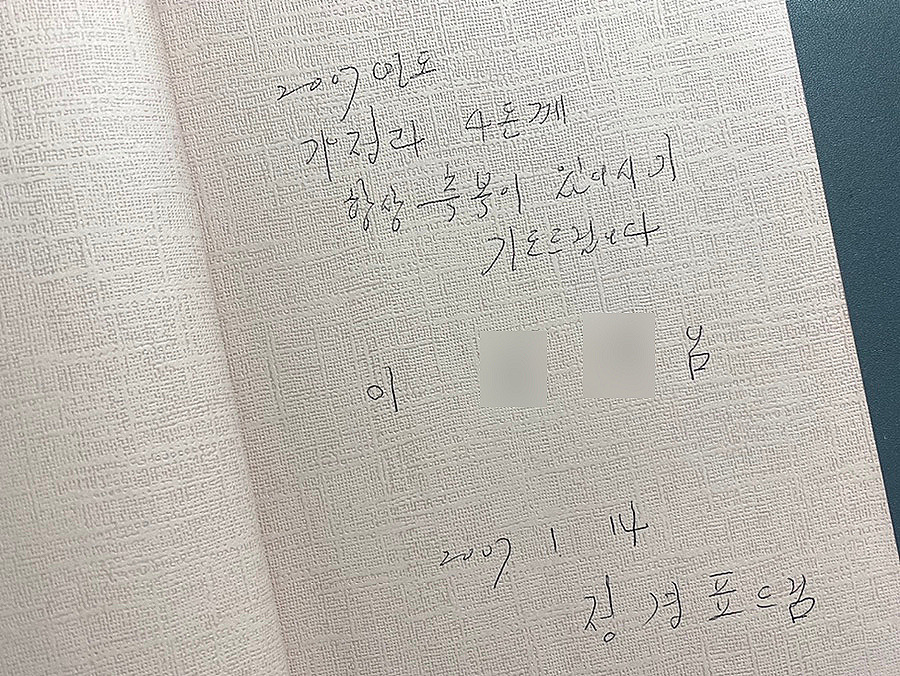 2007년도
가정과 4돈께
항상 축복이 있으시기
기도드립니다
이 님
2007 1 14
정경표드림